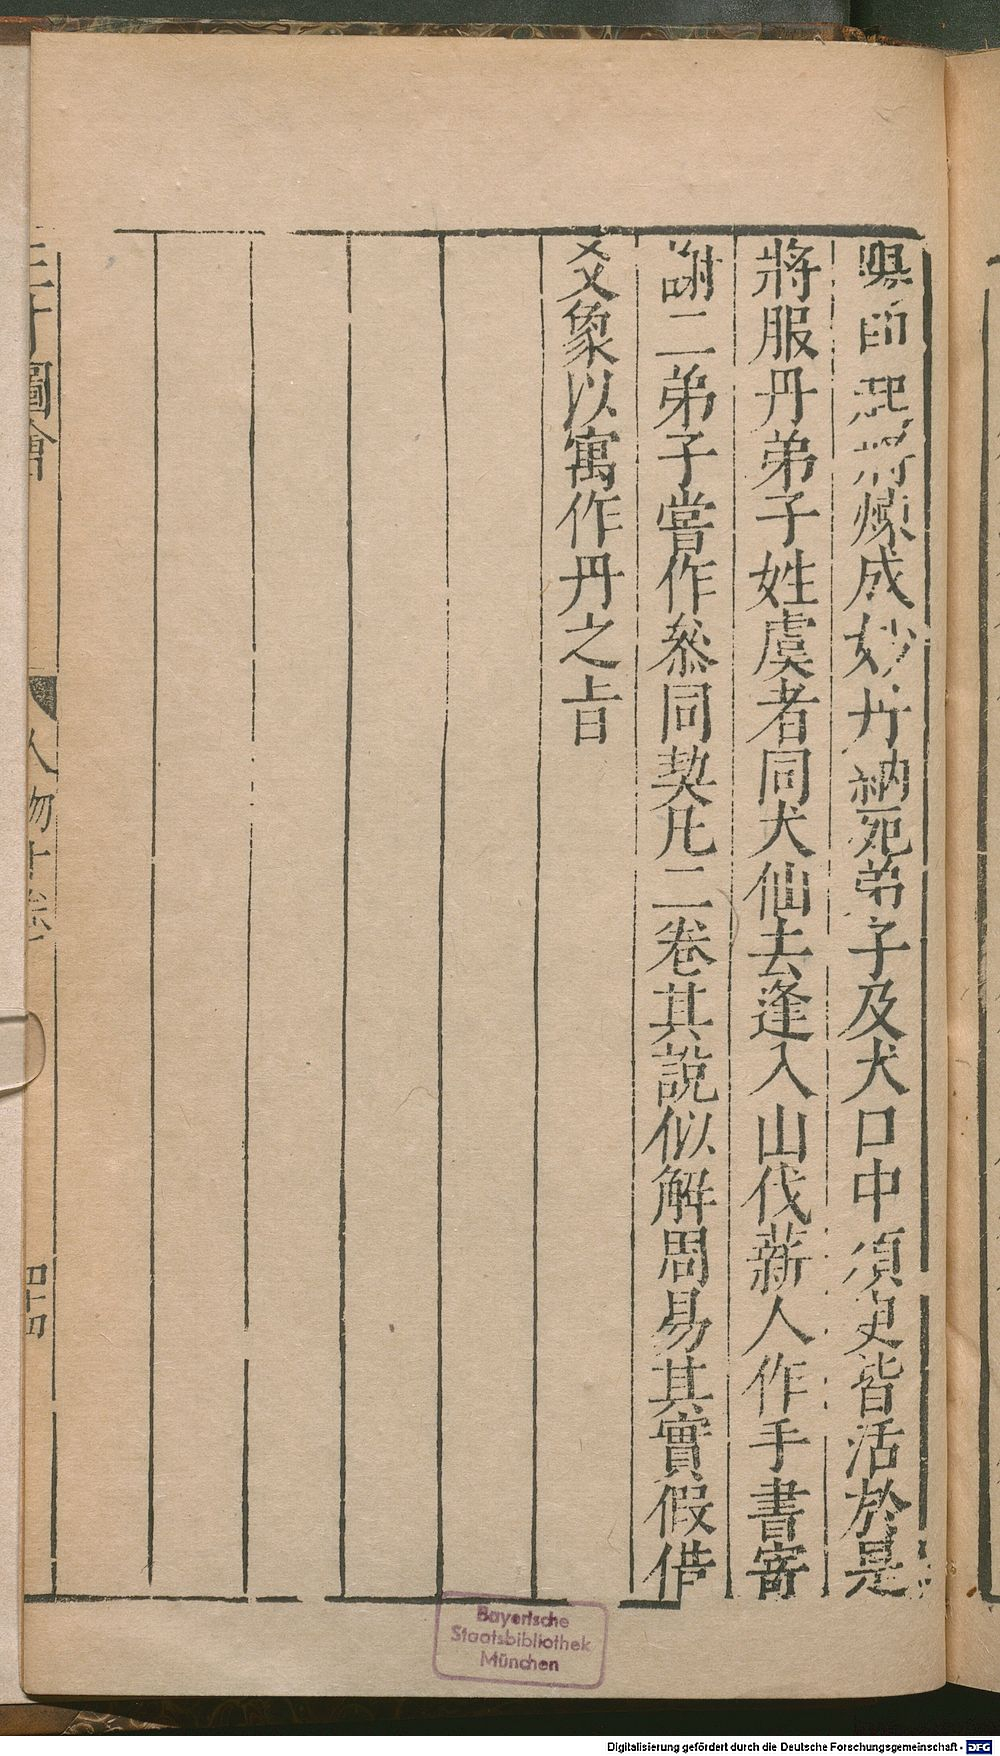 陽即起將煉成妙丹納死弟子及犬口中須臾皆活於是
將服丹弟子姓虞者同犬仙去逢入山伐薪人作手書寄
謝二弟子嘗作叅同契凡二卷其說似解周易其實假借
爻象以寓作丹之㫖
三才圖會
人物十卷
四十四
Bayerische
Staatsbibliothek
München
Digitalisierung gefördert durch die Deutsche Forschungsgemeinschaft - DFG